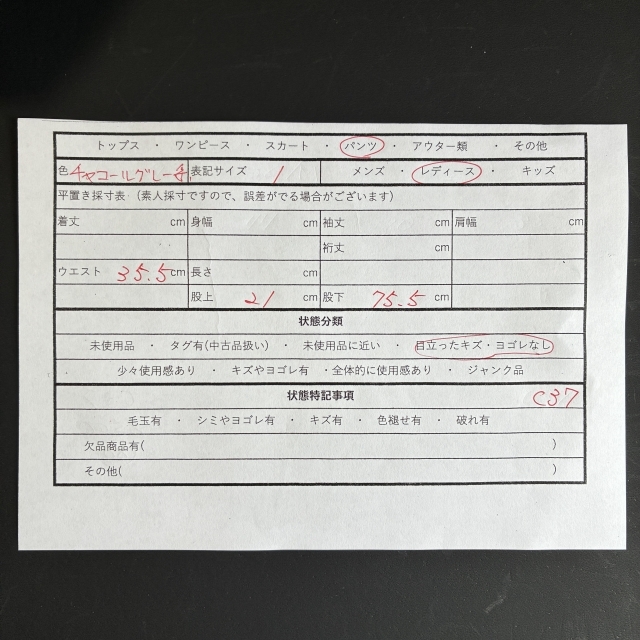 トップス ・ ワンピース ・ スカート ・ パンツ ・ アウター類 ・ その他
色 チャコールグレー系 表記サイズ 1 メンズ ・ レディース ・ キッズ
平置き採寸表 （素人採寸ですので、誤差がでる場合がございます）
着丈 cm 身幅 cm 袖丈 cm 肩幅 cm
裄丈 cm
ウエスト 35.5cm 長さ cm
股上 21 cm 股下 75.5 cm
状態分類
未使用品 ・ タグ有(中古品扱い) ・ 未使用品に近い ・ 目立ったキズ・ヨゴレなし
少々使用感あり ・ キズやヨゴレ有 ・全体的に使用感あり ・ ジャンク品
状態特記事項 C37
毛玉有 ・ シミやヨゴレ有 ・ キズ有 ・ 色褪せ有 ・ 破れ有
欠品商品有( )
その他( )